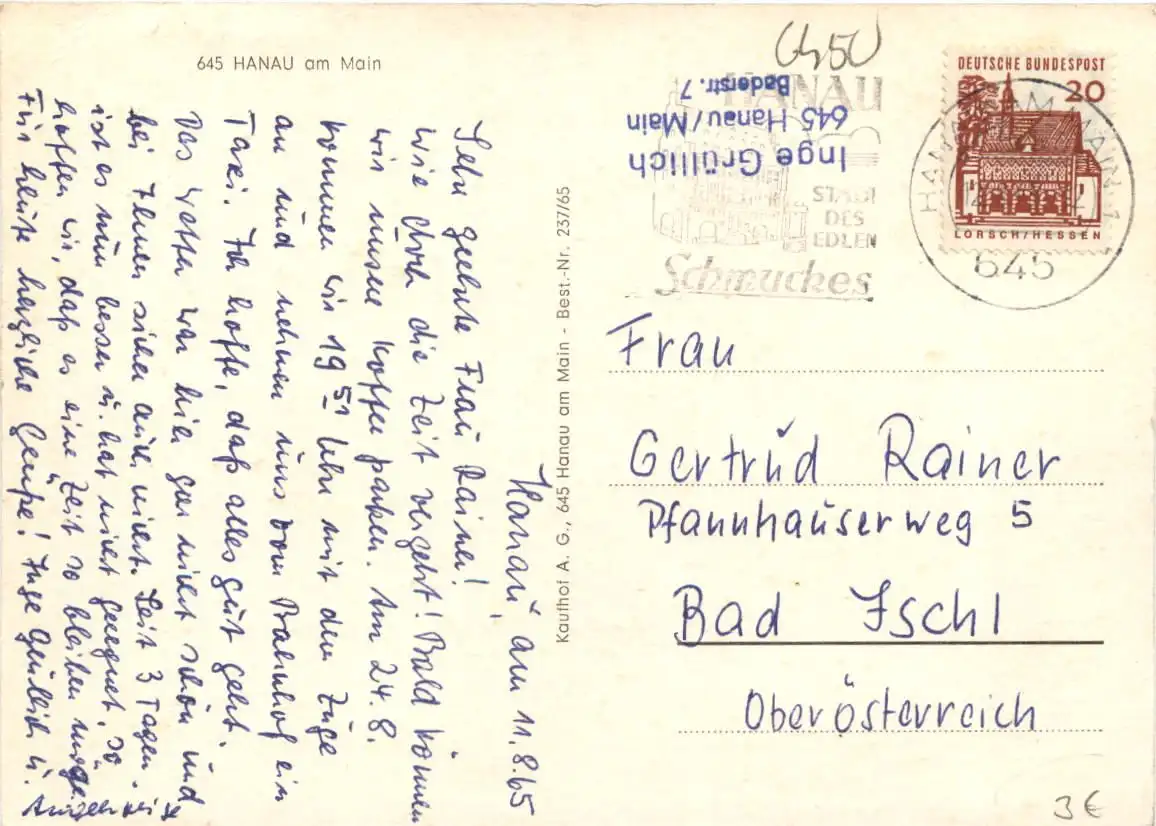 645 HANAU am Main
Hanau, am 11.8.65
Sehr geehrte Frau Rainer!
Wie doch die Zeit vergeht! Bald können
wir unsere Koffer packen. Am 24.8.
kommen wir 19 51 Uhr mit dem Zuge
an und nehmen uns vom Bahnhof ein
Taxi. Ich hoffe, daß alles gut geht.
Das Wetter war hier gar nicht schön und
bei Ihnen sicher auch nicht. Seit 3 Tagen
ist es nun besser u. hat nicht geregnet. So
hoffen wir, daß es eine Zeit so bleiben möge.
Für heute herzliche Grüße! Inge Grüllich u.
Kaufhof A. G., 645 Hanau am Main - Best.-Nr. 237/65
6450
Inge Grüllich
645 Hanau/Main
Baderstr. 7
HANAU
STADT
DES
EDLEN
Schmuckes
DEUTSCHE BUNDESPOST
20
LORSCH/HESSEN
HANAU AM MAIN 1
645
Frau
Gertrud Rainer
Pfannhauserweg 5
Bad Ischl
Oberösterreich
3 €